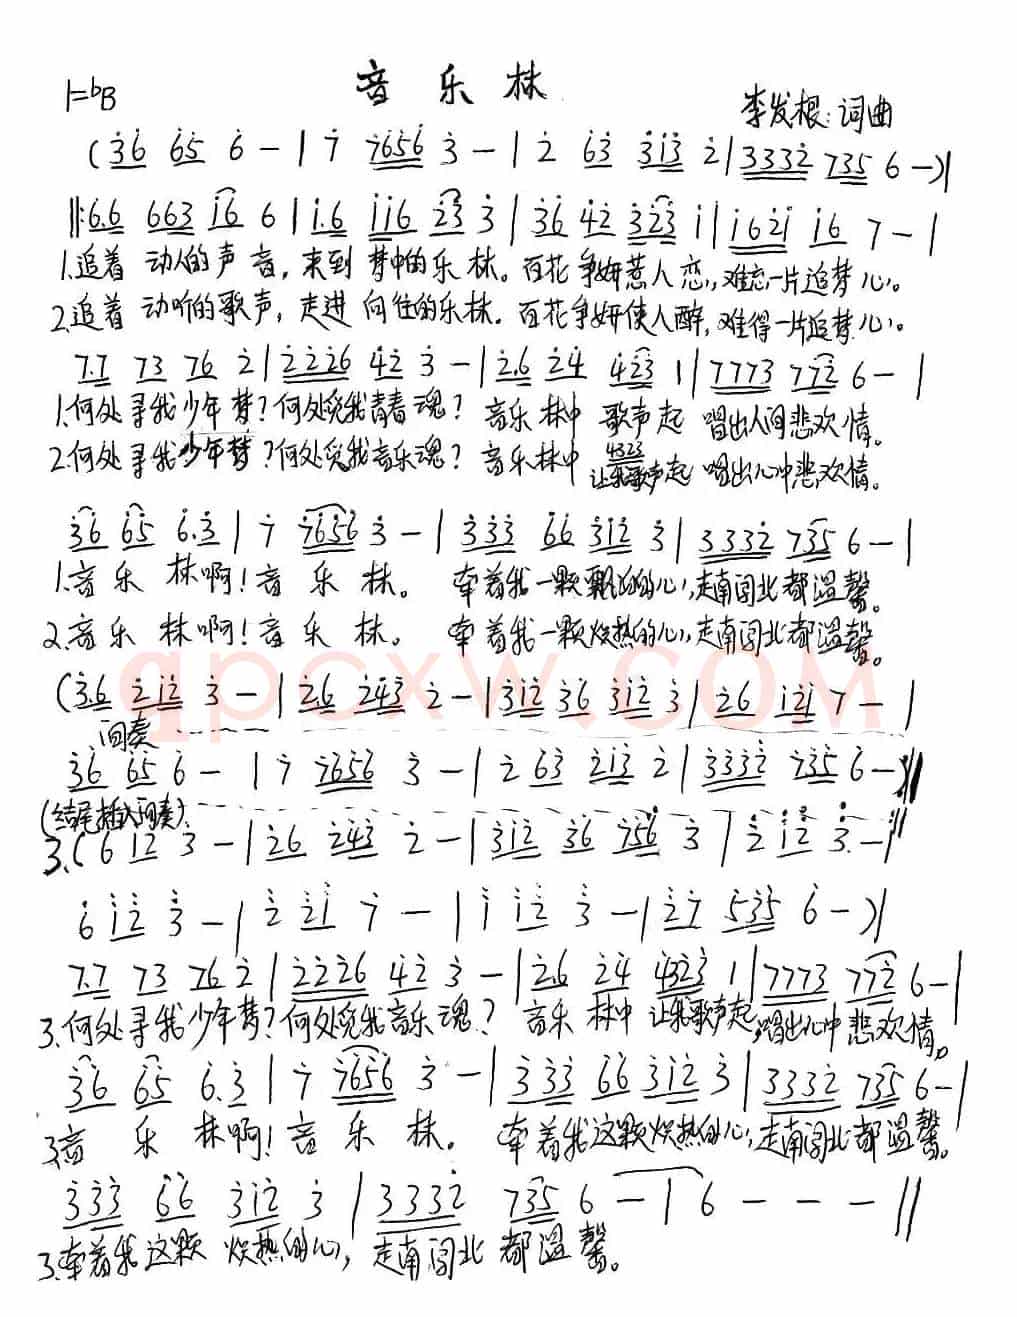 音乐林
1=ᵇB
李发根:词曲
(36 65 6 - | 7 7656 3 - | 2 63 313 2 | 3332 735 6 -)|
‖:6.6 663 16 6 | 1.6 116 23 3 | 36 42 323 1 ‖ 1621 16 7 - |
1.追着 动人的声音,来到 梦中的乐林。百花争妍惹人恋,难忘一片追梦心。
2.追着 动听的歌声,走进 向往的乐林。百花争妍使人醉,难得一片追梦心。
7.7 73 76 2 | 2226 42 3 - | 2.6 24 423 1 | 7773 772 6 - |
1.何处寻我少年梦?何处觅我青春魂?音乐林中 歌声起 唱出人间悲欢情。
4323
2.何处寻我少年梦?何处觅我音乐魂?音乐林中 让我歌声起 唱出心中悲欢情。
36 65 6.3 | 7 7656 3 - | 333 66 312 3 | 3332 735 6 - |
1.音乐林啊!音乐林。 牵着我一颗飘泊的心,走南闯北都温馨。
2.音乐林啊!音乐林。 牵着我一颗炽热的心,走南闯北都温馨。
qpcxw.COM
(3.6 212 3 - | 2.6 243 2 - | 312 36 312 3 | 26 121 7 - |
间奏
36 65 6 - | 7 7656 3 - | 2 63 213 2 | 3332 735 6 -)‖
(结尾插入间奏)
3.(6 12 3 - | 26 243 2 - | 312 36 756 3 | 2 12 3. - |
6 12 3 - | 2 21 7 - | 1 12 3 - | 27 535 6 -)|
7.7 73 76 2 | 2226 42 3 - | 2.6 24 4323 1 | 7773 772 6 - |
3.何处寻我少年梦?何处觅我音乐魂?音乐林中 让我歌声起,唱出心中悲欢情。
36 65 6.3 | 7 7656 3 - | 333 66 312 3 | 3332 735 6 - |
3.音乐林啊!音乐林。 牵着我这颗炽热的心,走南闯北都温馨。
333 66 312 3 | 3332 735 6 - | 6 - - - ‖
3.牵着我这颗 炽热的心,走南闯北 都温馨。